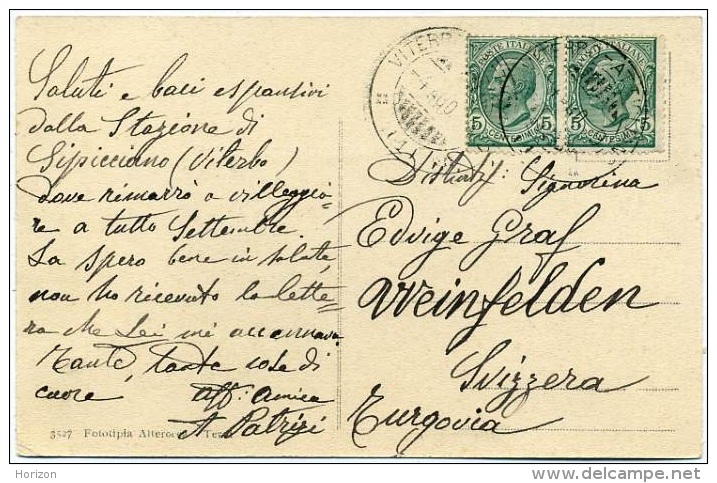 Saluti e baci espansivi
dalla Stazione di
Sipicciano (Viterbo)
dove rimarrò a villeggia-
re a tutto Settembre.
La spero bene in salute,
non ho ricevuto la lette-
ra che Lei mi accennava
Tante, tante cose di
cuore aff: amica
A Patrizi
VITERBO
POSTE ITALIANE
5 CENTESIMI 5
POSTE ITALIANE
5 CENTESIMI 5
Signorina
Edvige Graf
Weinfelden
Svizzera
Turgovia
3527 Fototipia Alterocca
Horizon
delcampe.net